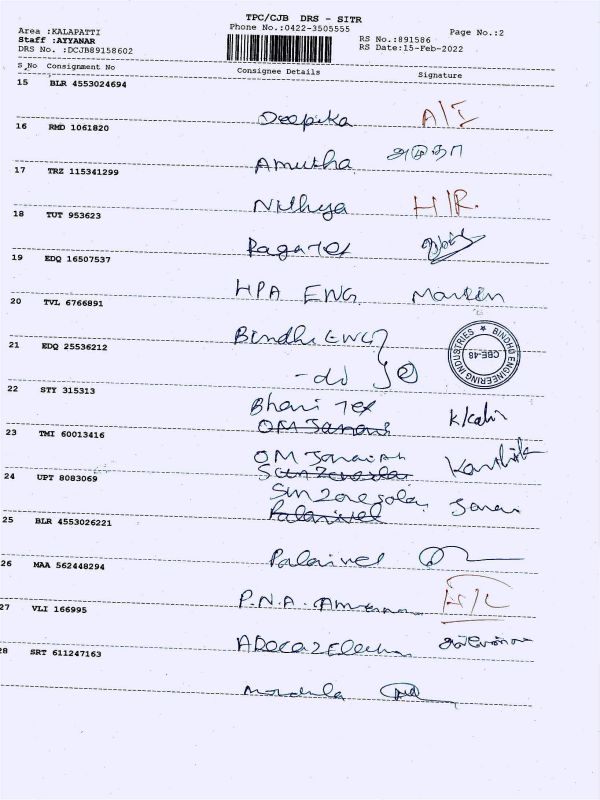 TPC/CJB DRS - SITR
Phone No.:0422-3505555
Area :KALAPATTI
Staff :AYYANAR
DRS No. :DCJB89158602
RS No.:891586
RS Date:15-Feb-2022
Page No.:2
S No Consignment No Consignee Details Signature
15 BLR 4553024694
Deepika A/I
16 RMD 1061820
Amutha அமுதா
17 TRZ 115341299
Nithya H/R.
18 TUT 953623
19 EDQ 16507537
HPA ENG
20 TVL 6766891
Bindhu ENG
21 EDQ 25536212
-do
BINDHØ ENGINEERING INDUSTRIES ★
CBE-48
22 STY 315313
Bhari Tex
23 TMI 60013416
OM Karthik
24 UPT 8083069
Sun Zone Solar
Palanivel
25 BLR 4553026221
Palanivel
26 MAA 562448294
P.N.A.
27 VLI 166995
28 SRT 611247163